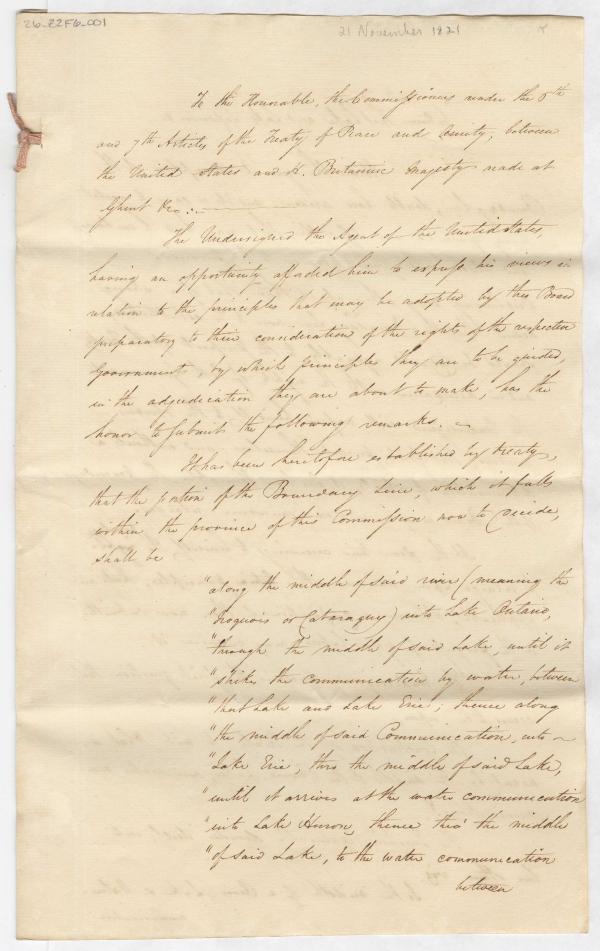 26-22F6-001
21 November 1821
To the Honorable, the Commissioners under the 6th
and 7th Articles of the Treaty of Peace and Amity, between
the United States and H. Britannic Majesty made at
Ghent &c:—
The Undersigned the Agent of the United States,
having an opportunity afforded him to express his views in
relation to the principles that may be adopted by this Board
preparatory to their consideration of the rights of the respective
Governments, by which principles they are to be guided,
in the adjudication they are about to make, has the
honor to submit the following remarks. —
It has been heretofore established by treaty,
that the portion of the Boundary Line, which it falls
within the province of this Commission now to decide,
shall be
"along the middle of said river (meaning the
"Iroquois or Cataraguy) into Lake Ontario,
"through the middle of said Lake, until it
"strikes the communication by water, between
"that Lake and Lake Erie; thence along
"the middle of said Communication, into —
"Lake Erie, thro the middle of said Lake,
"until it arrives at the water communication
"into Lake Huron, thence thro' the middle
"of said Lake, to the water communication
between